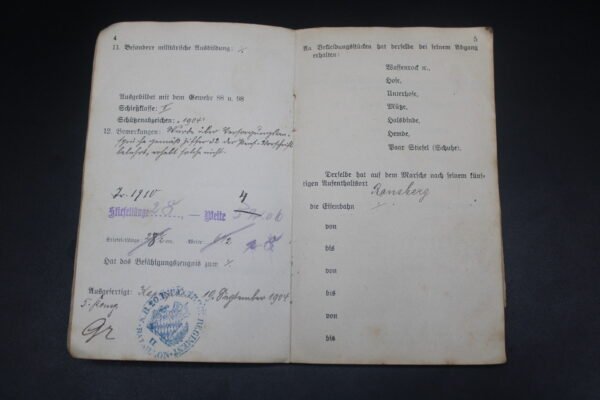 4
11. Besondere militärische Ausbildung: ./.
Ausgebildet mit dem Gewehr 88 u. 98
Schießklasse: I
Schützenabzeichen: „1904“
12. Bemerkungen: Wurde über Versorgungsan-
sprüche gemäß Ziffer 32 der Prüf. Vorschrift
belehrt, erhebt solche nicht.
Jr. 1910 4
Stiefellänge 28 — Weite
Stiefellänge 28½ cm, Weite
Hat das Befähigungszeugnis zum ./.
Ausgefertigt: 19. September 1904.
5. Komp.
5
An Bekleidungsstücken hat derselbe bei seinem Abgang
erhalten:
Waffenrock rc.,
Hose,
Unterhose,
Mütze,
Halsbinde,
Hemde,
Paar Stiefel (Schuhe).
Derselbe hat auf dem Marsche nach seinem künf-
tigen Aufenthaltsort Ronsberg
die Eisenbahn
von
bis
von
bis
von
bis